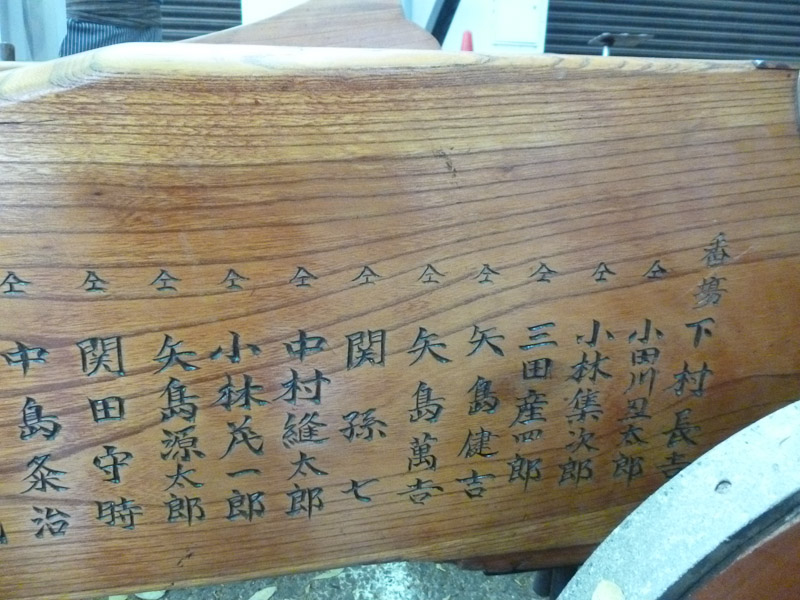 番場 下村長吉
仝 小田川丑太郎
仝 小林集次郎
仝 三田産四郎
仝 矢島健吉
仝 矢島萬吉
仝 関孫七
仝 中村縫太郎
仝 小林茂一郎
仝 矢島源太郎
仝 関田守時
仝 中島粂治